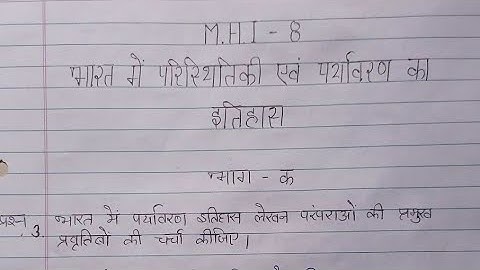 M.H.I - 8
भारत में परिस्थितिकी एवं पर्यावरण का
इतिहास
भाग - क
प्रश्न 3. भारत में पर्यावरण इतिहास लेखन परंपराओं की प्रमुख
प्रवृतियों की चर्चा कीजिए।